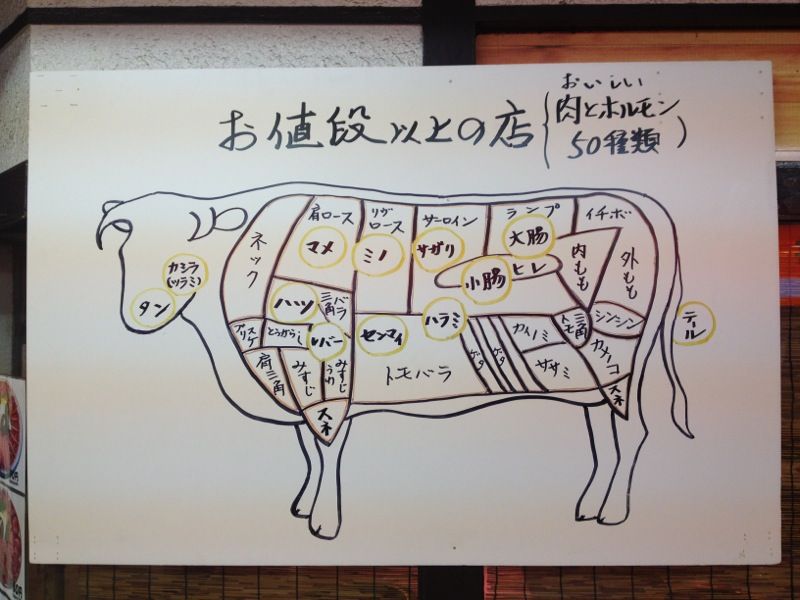 おいしい
お値段以上の店 (肉とホルモン
50種類)
肩ロース
リブ
ロース
サーロイン
ランプ
イチボ
ネック
マメ
ミノ
サガリ
大腸
ヒレ
小腸
内もも
外もも
カシラ
(ツラミ)
タン
ハツ
三角
バラ
センマイ
ハラミ
カイノミ
三角
トモ
シンシン
テール
ブリスケ
とうがらし
レバー
トモバラ
ゲタ
ゲタ
ササミ
カメノコ
肩三角
みすじ
うわ
みすじ
スネ
スネ